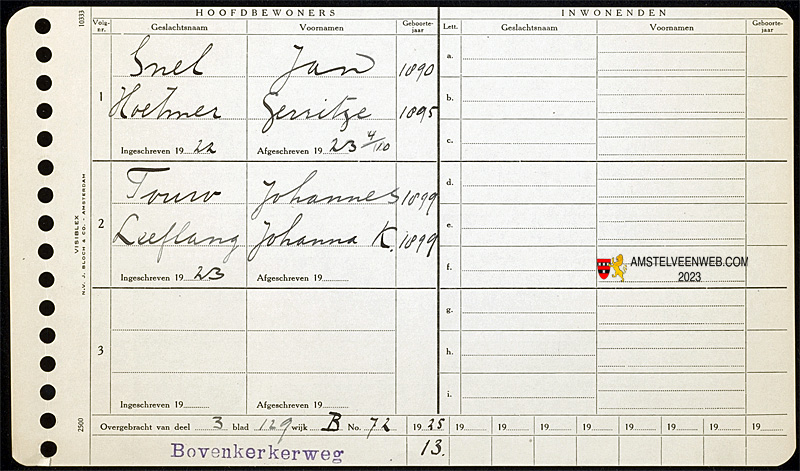 HOOFDBEWONERS INWONENDEN
Volg-nr. Geslachtsnaam Voornamen Geboorte-jaar Lett. Geslachtsnaam Voornamen Geboorte-jaar
10333
1
Snel Jan 1890
Hoetmer Gerritje 1895
Ingeschreven 19 22 Afgeschreven 19 23 4/10
2
Touw Johannes 1899
Leeflang Johanna K. 1899
Ingeschreven 19 23 Afgeschreven 19
3
Ingeschreven 19 Afgeschreven 19
a.
b.
c.
d.
e.
f.
g.
h.
i.
AMSTELVEENWEB.COM
2023
VISIBLEX
N.V. J. BLOCH & CO. / AMSTERDAM
2500
Overgebracht van deel 3 blad 129 wijk B No. 72 19 25 19 19 19 19 19 19 19
Bovenkerkerweg 13.